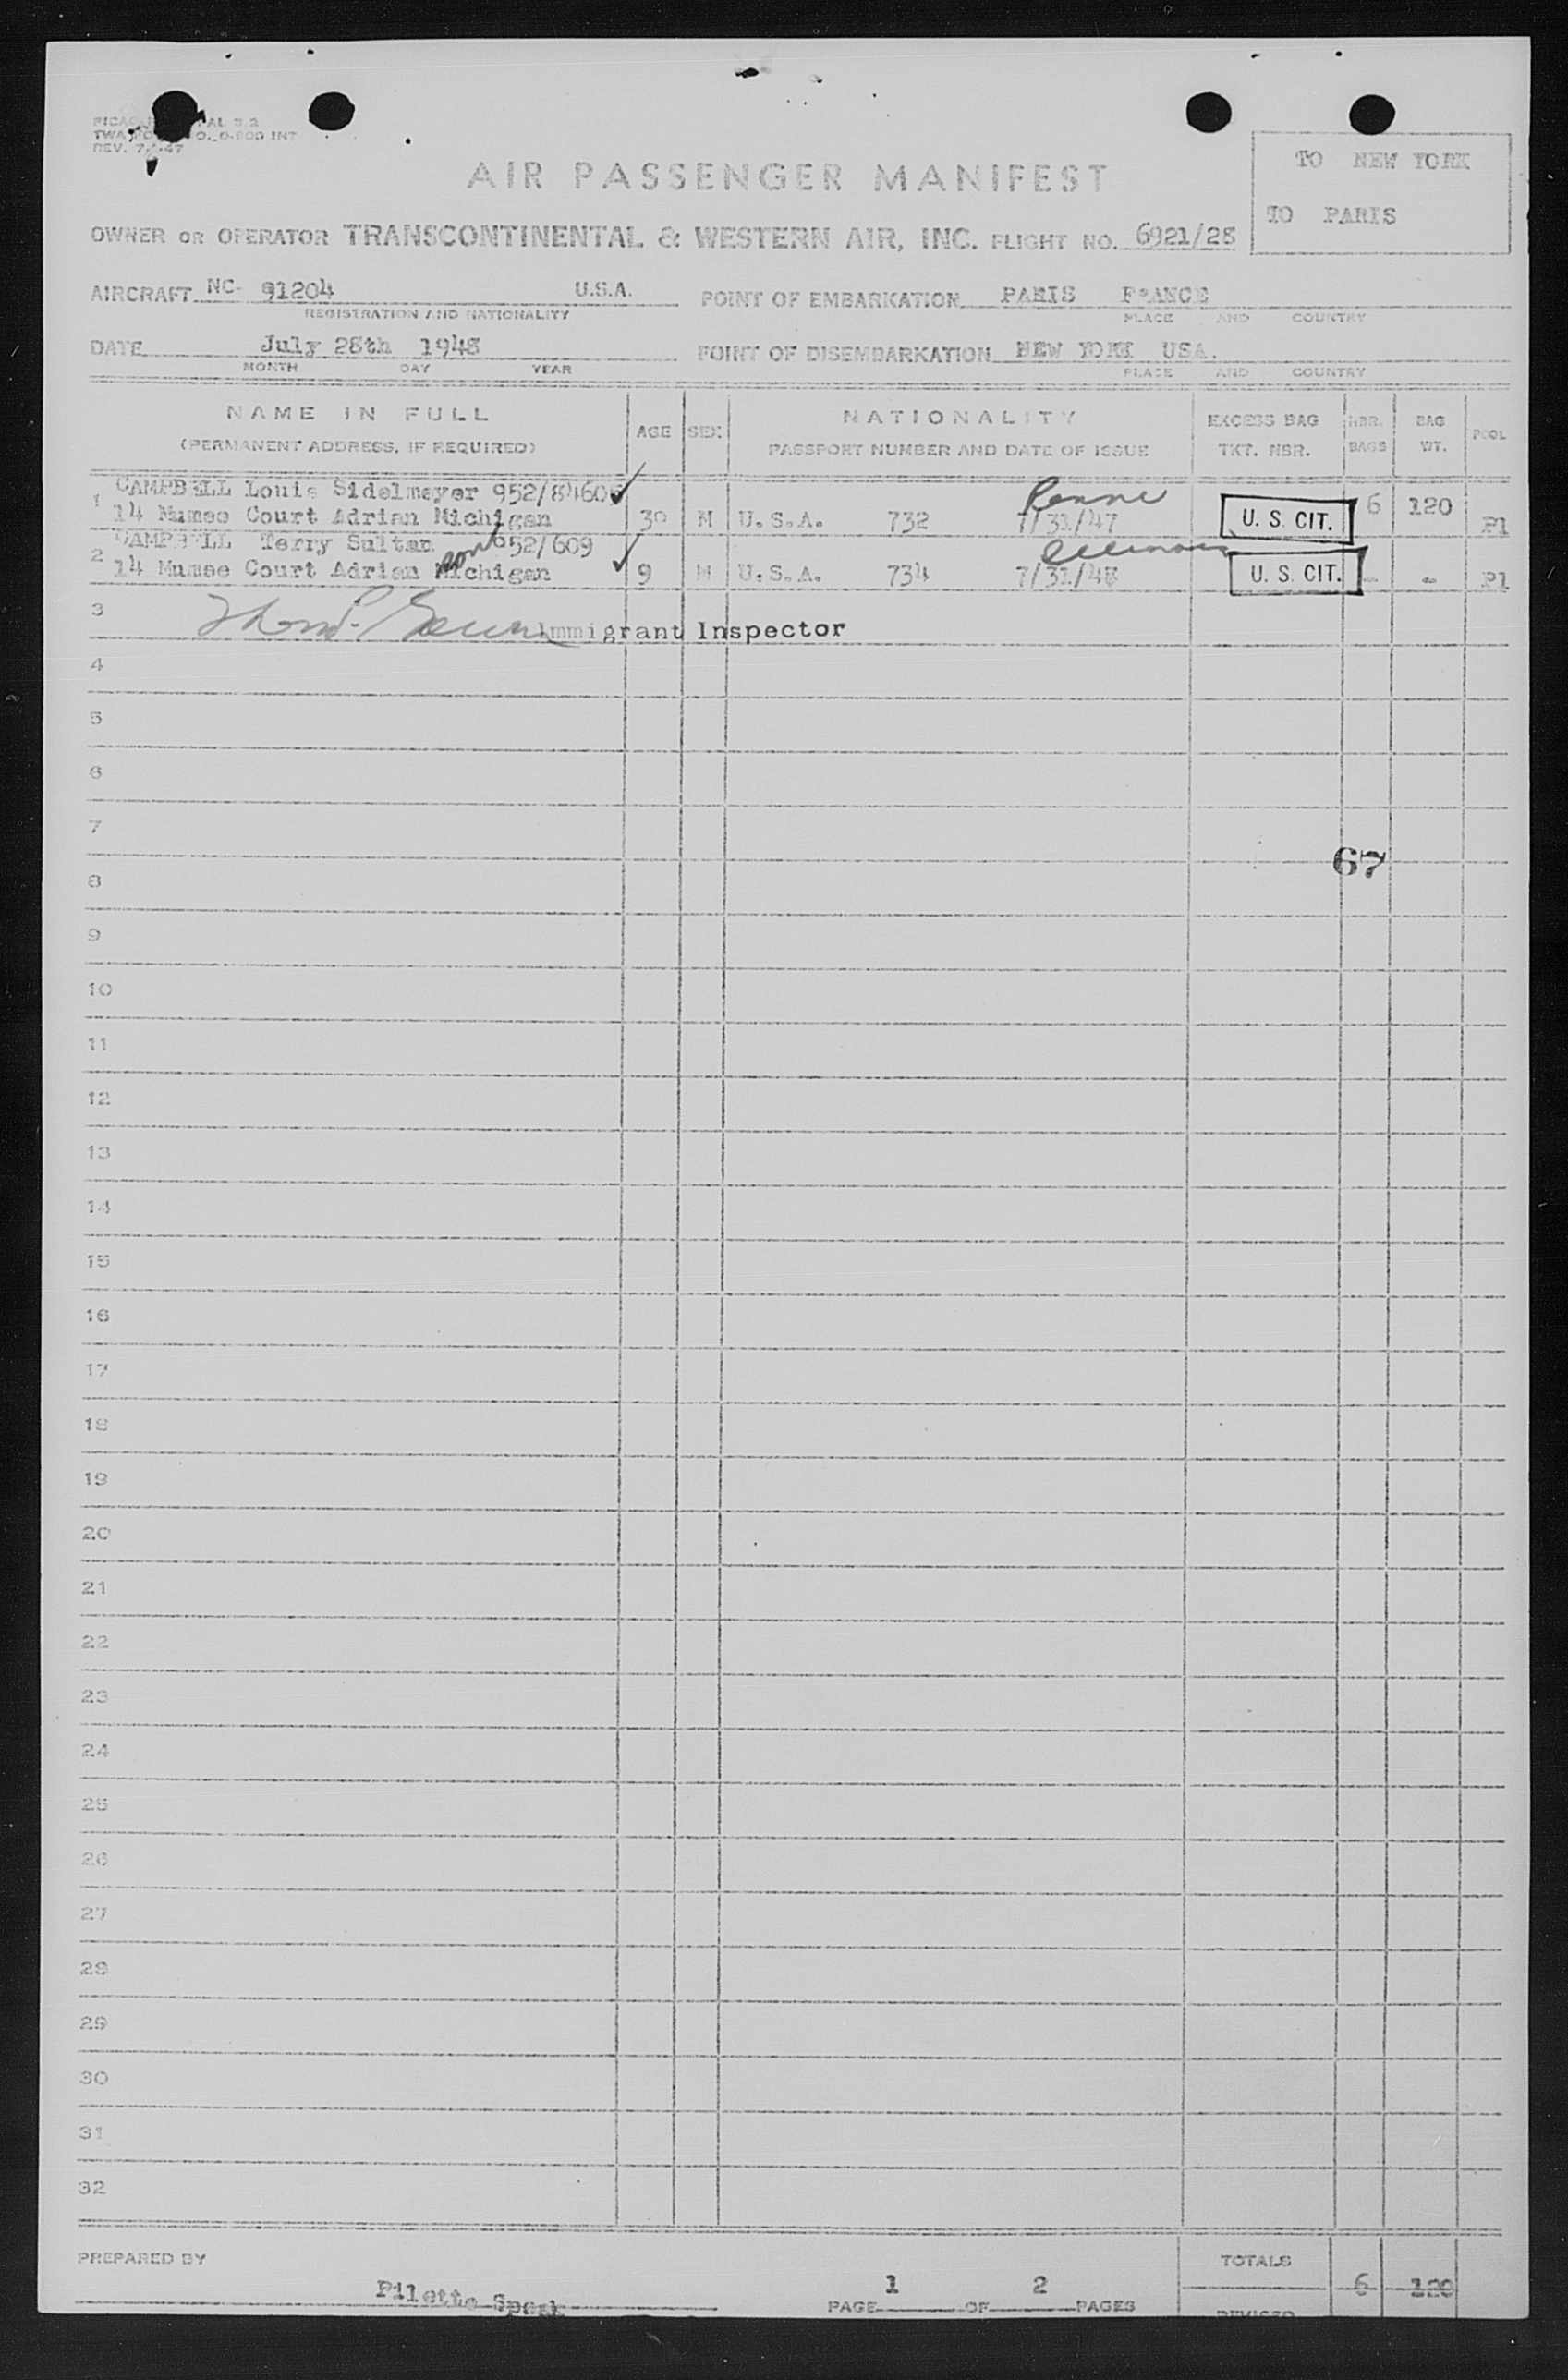 REV. 7-1-47
TO NEW YORK
TO PARIS
AIR PASSENGER MANIFEST
OWNER OR OPERATOR TRANSCONTINENTAL & WESTERN AIR, INC. FLIGHT NO. 6921/28
AIRCRAFT NC- 91204 U.S.A. POINT OF EMBARKATION PARIS FRANCE
REGISTRATION AND NATIONALITY PLACE AND COUNTRY
DATE July 28th 1948 POINT OF DISEMBARKATION NEW YORK USA.
MONTH DAY YEAR PLACE AND COUNTRY
NAME IN FULL AGE SEX NATIONALITY EXCESS BAG NBR. BAG POOL
(PERMANENT ADDRESS, IF REQUIRED) PASSPORT NUMBER AND DATE OF ISSUE TKT. NBR. BAGS WT.
1 CAMPBELL Louis Sidelmeyer Penna
14 Mumee Court Adrian Michigan 30 M U.S.A. 732 7/31/47 U. S. CIT. 6 120 P1
2 CAMPBELL Terry Sultan son 952/609
14 Mumee Court Adrian Michigan 9 M U.S.A. 734 U. S. CIT. - - P1
3 Immigrant Inspector
4
5
6
7
67
8
9
10
11
12
13
14
15
16
17
18
19
20
21
22
23
24
25
26
27
28
29
30
31
32
PREPARED BY TOTALS 6 120
Pilette Speak PAGE 1 OF 2 PAGES
REVISED